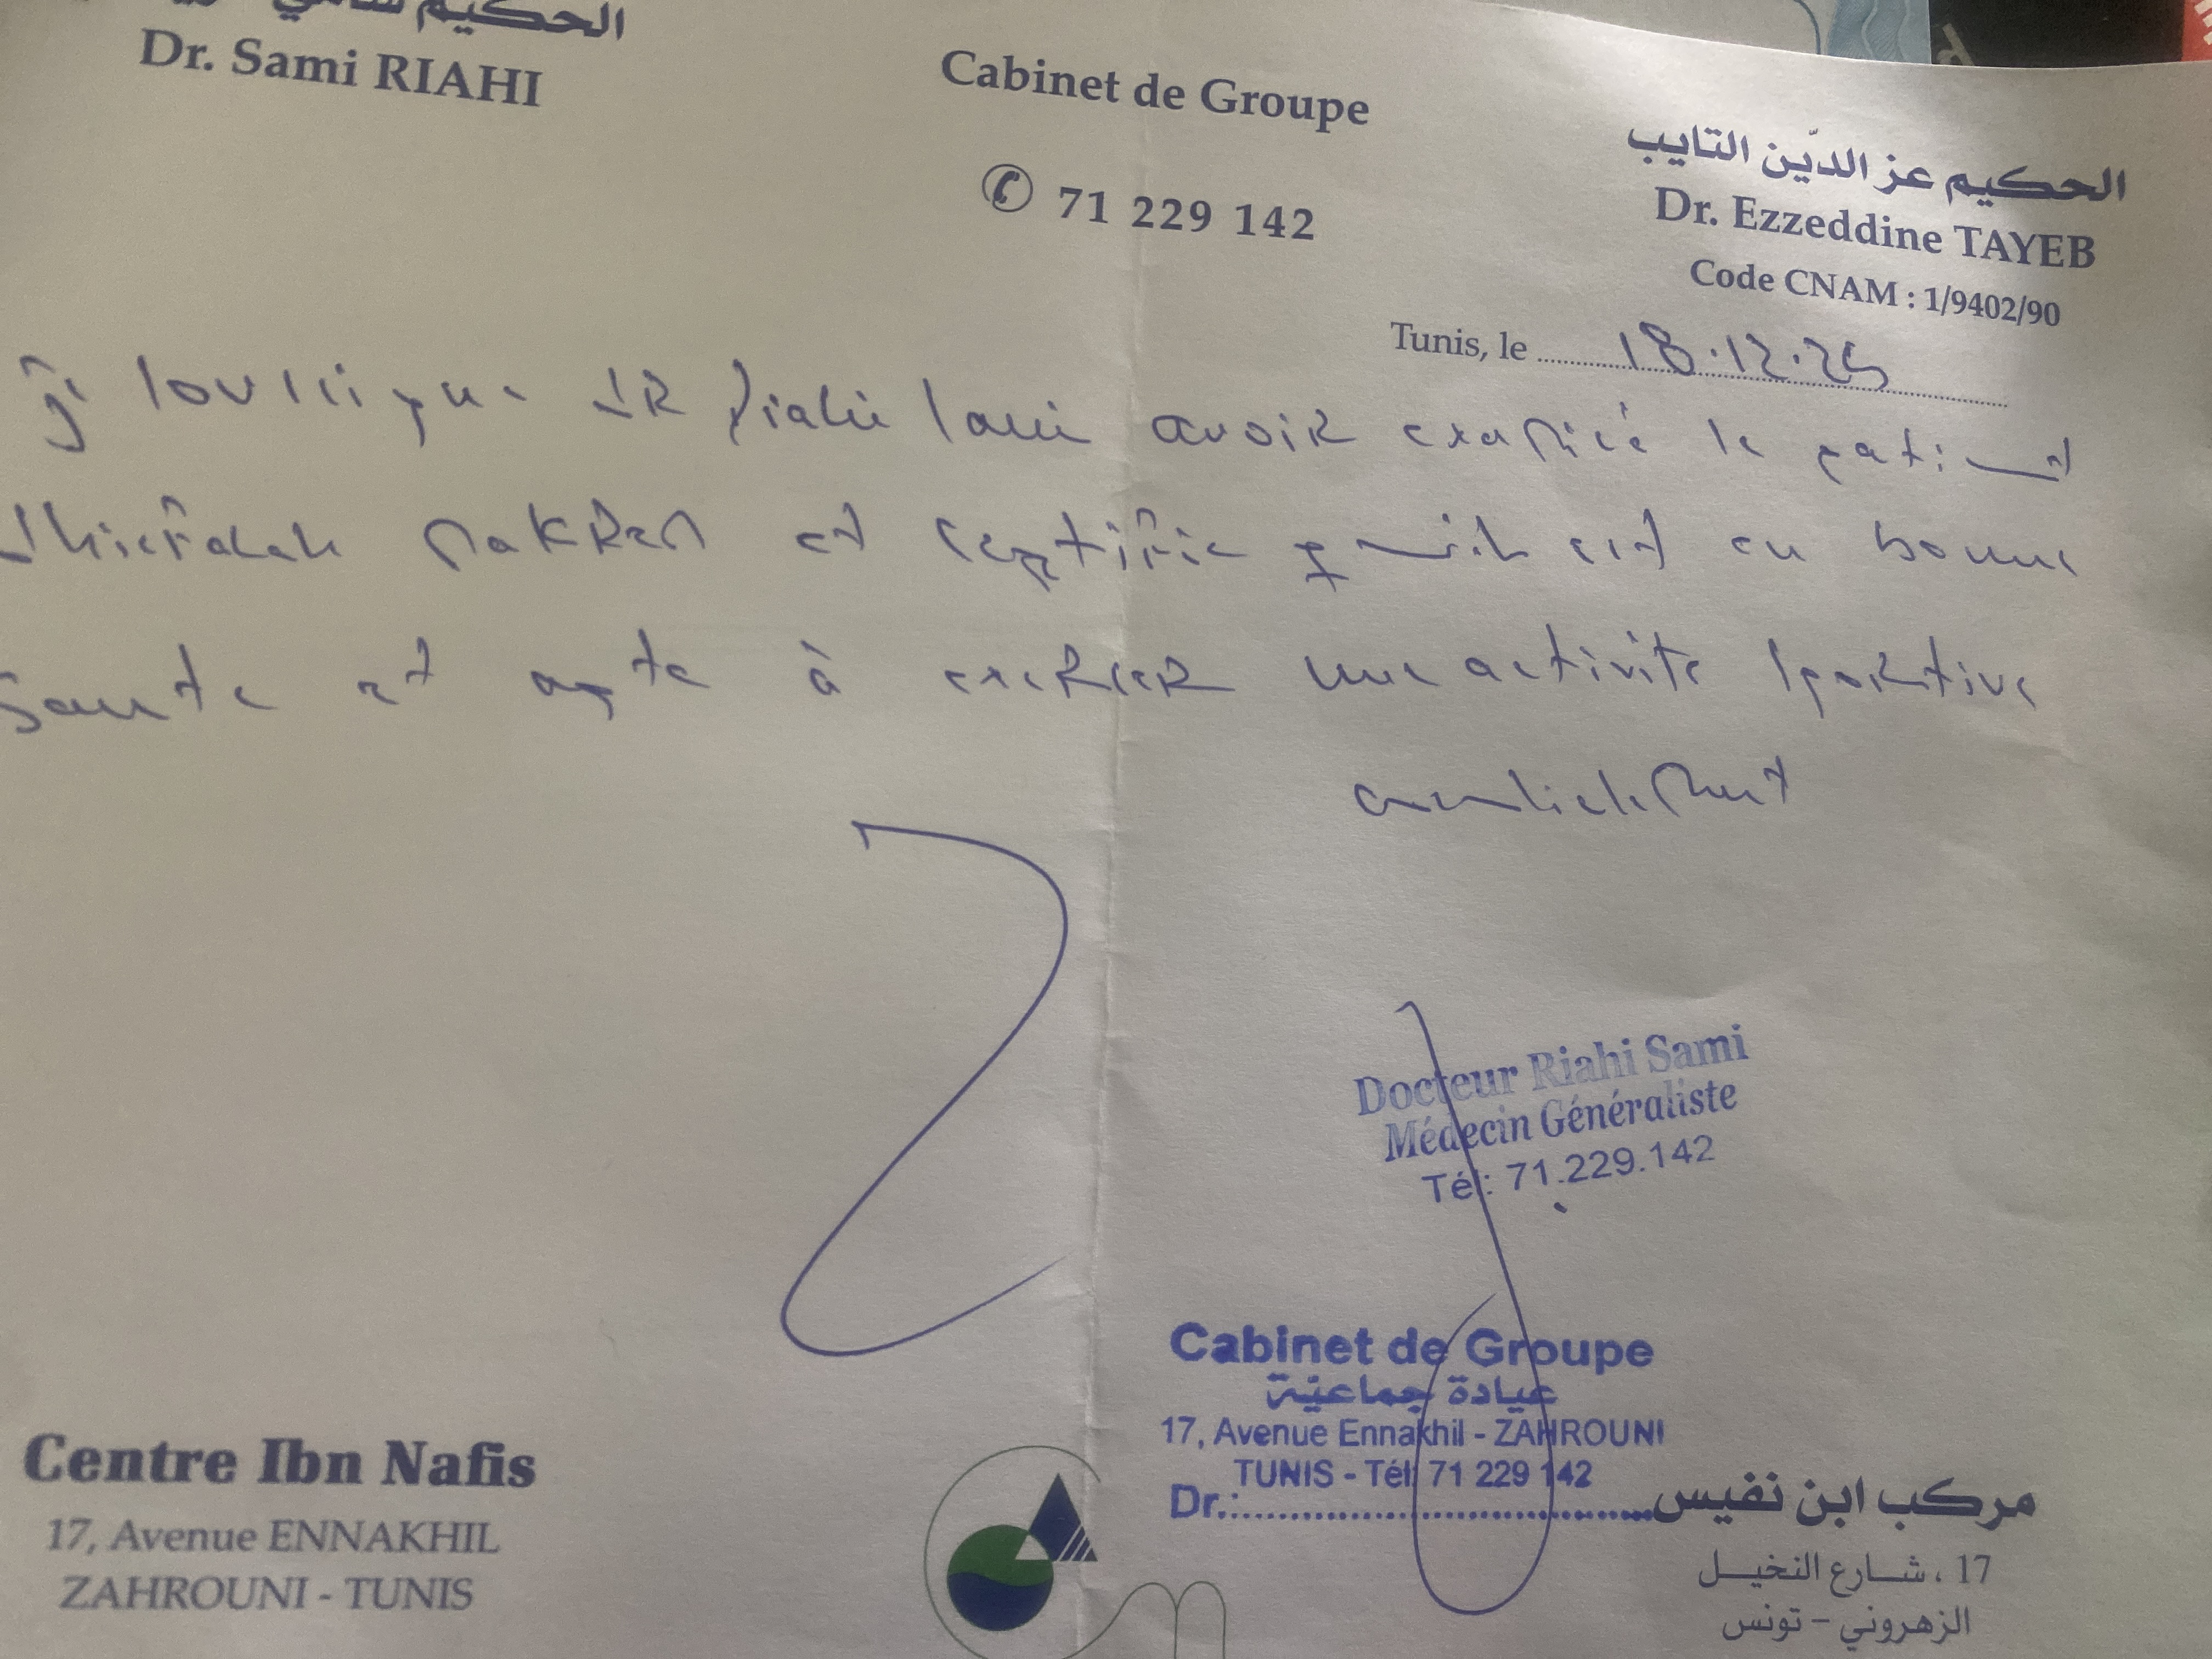 الحكيم سامي
Dr. Sami RIAHI
Cabinet de Groupe
✆ 71 229 142
الحكيم عز الدّين التايب
Dr. Ezzeddine TAYEB
Code CNAM : 1/9402/90
Tunis, le 18.12.25
Je soussigné DR Riahi Sami avoir examiné le patient
makrem et certifie qu'il est en bonne
santé et apte à exercer une activité sportive
actuellement
Docteur Riahi Sami
Médecin Généraliste
Tél: 71.229.142
Cabinet de Groupe
عيادة جماعيّة
17, Avenue Ennakhil - ZAHROUNI
TUNIS - Tél: 71 229 142
Dr.:
Centre Ibn Nafis
17, Avenue ENNAKHIL
ZAHROUNI - TUNIS
مركب ابن نفيس
17 ، شارع النخيل
الزهروني - تونس